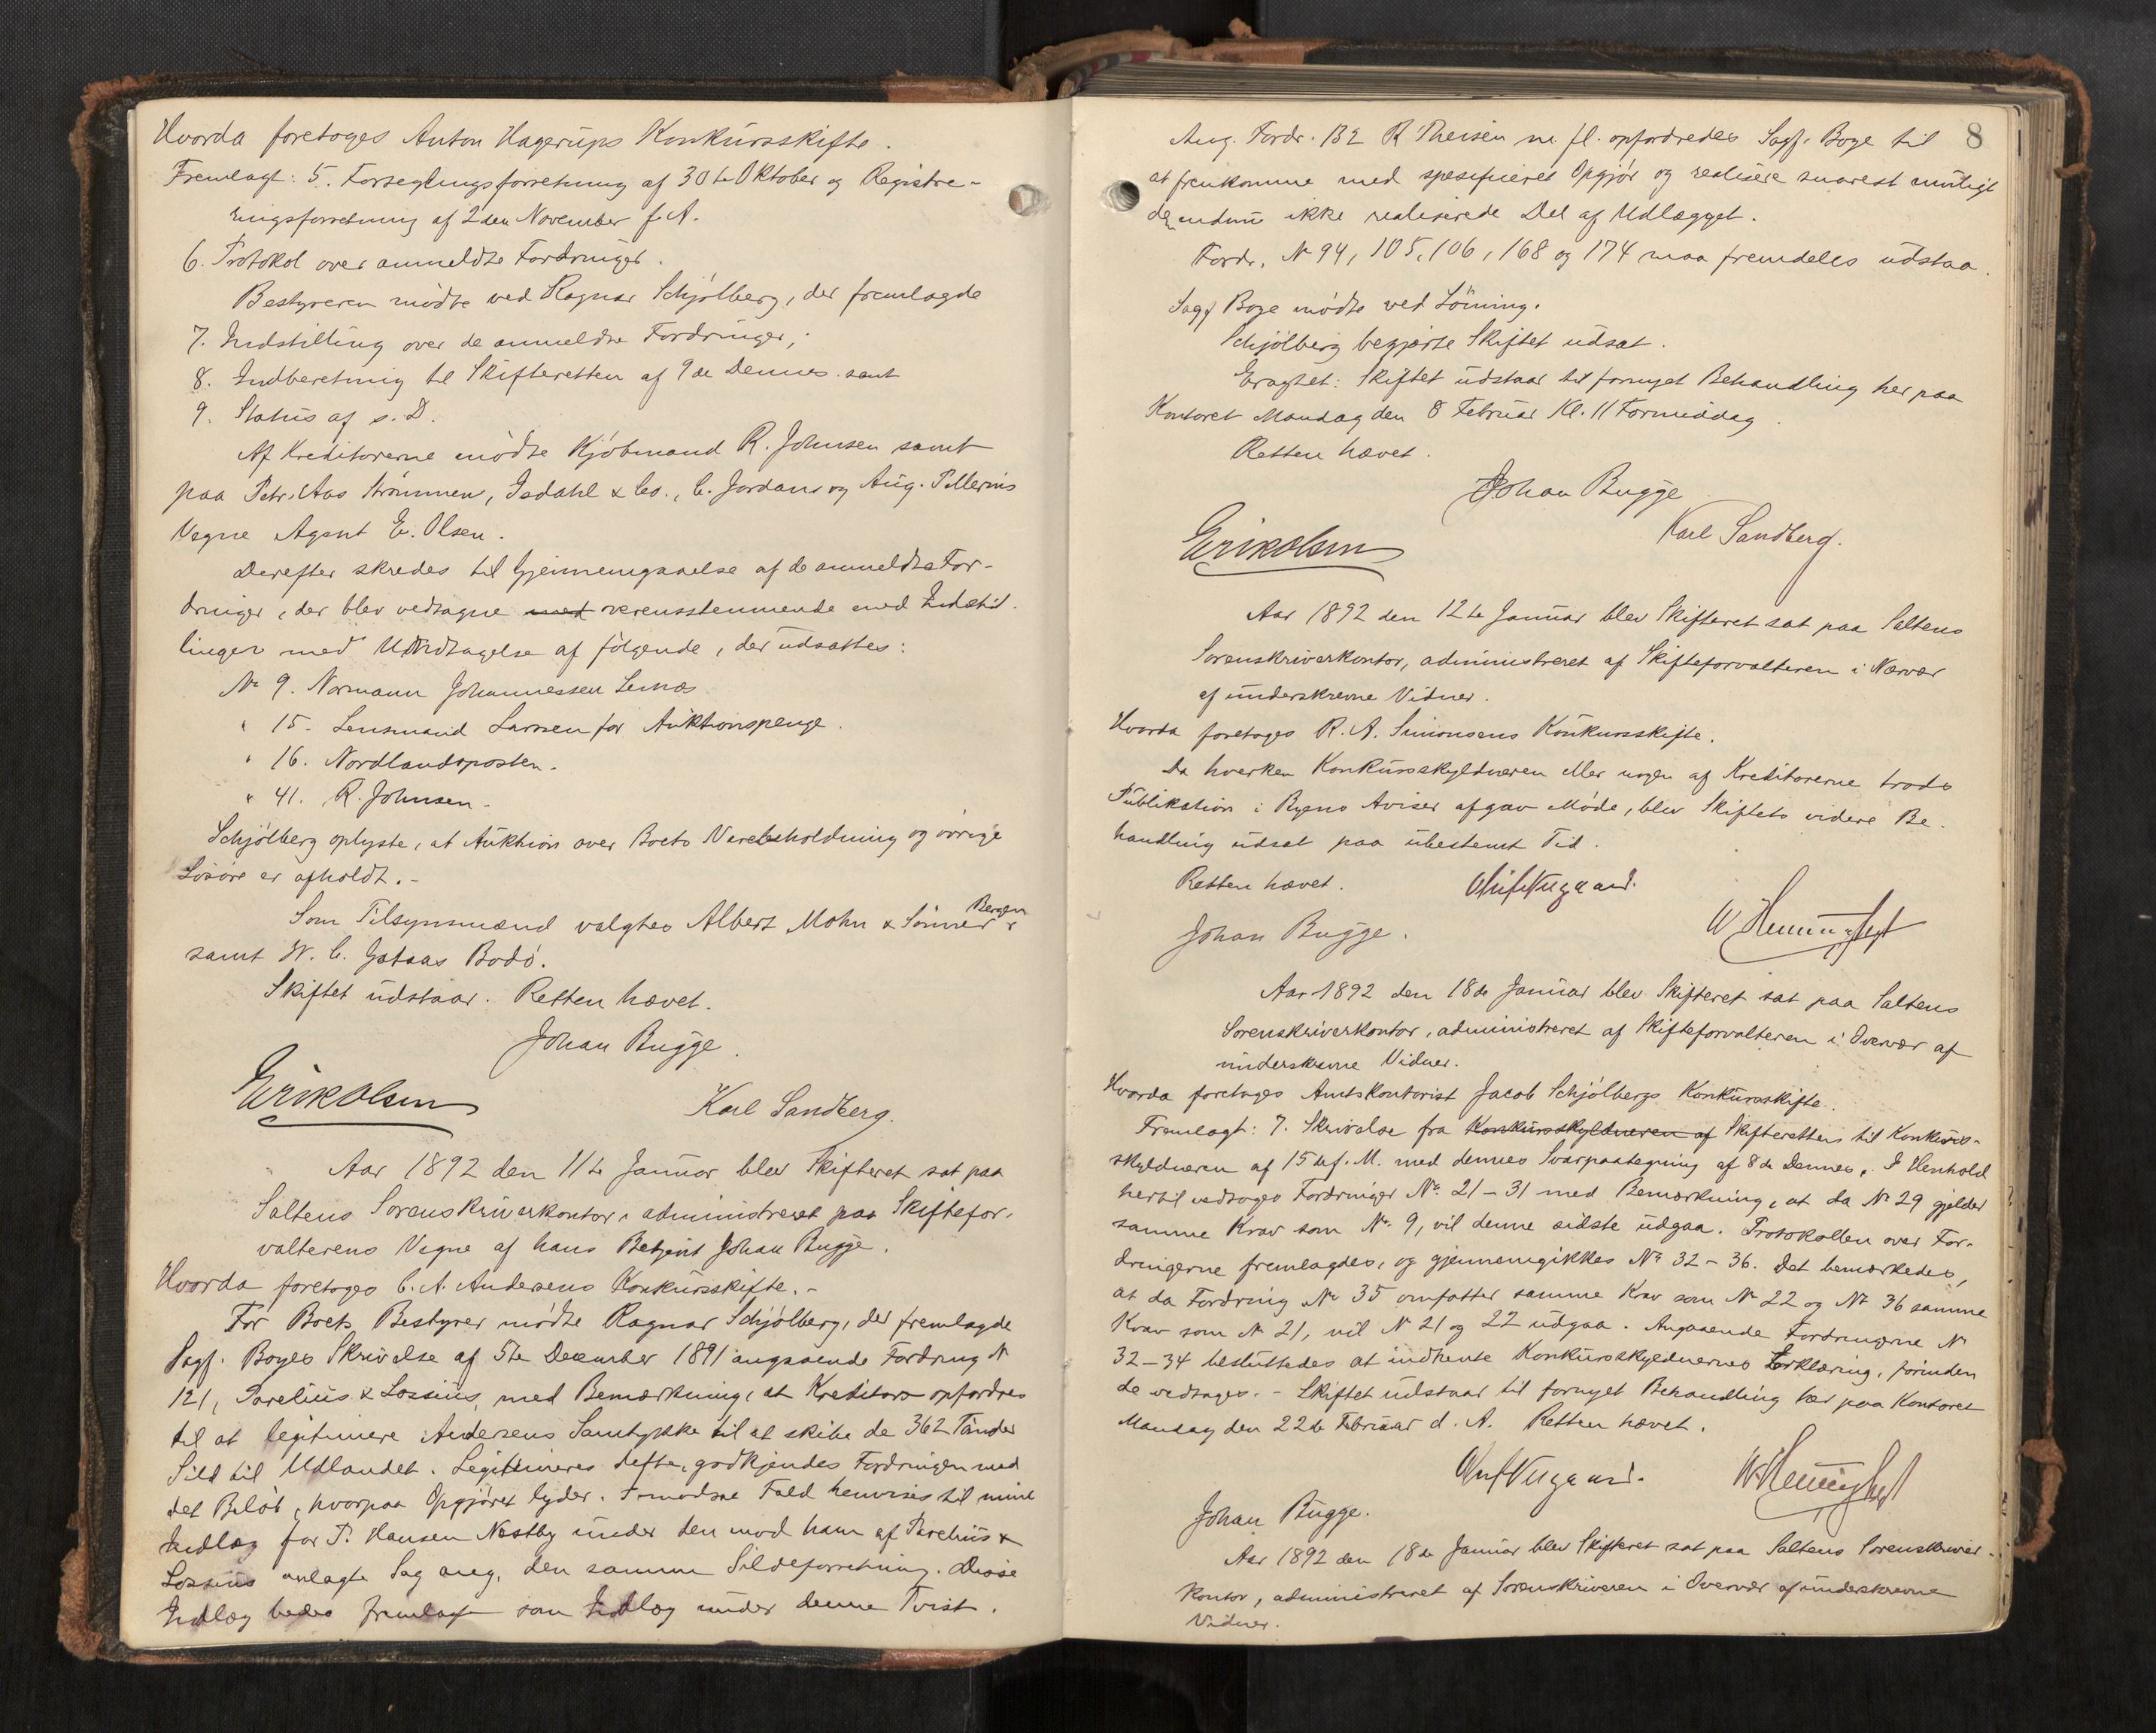 Hvorda foretoges Anton Hagerups Konkursskifte.
Fremlagt: 5. Forseglingsforretning af 30te Oktober og Registre-
ringsforretning af 2den November f. A.
6. Protokol over anmeldte Fordringer.
Bestyreren mødte ved Ragnar Schjölberg, der fremlagde
7. Indstilling over de anmeldte Fordringer,
8. Indberetning til Skifteretten af 9de Dennes samt
9. Status af s. D.
Af Kreditorerne mødte Kjøbmand R. Johnsen samt
paa Petr. Aas Strömmen, Isdahl & Co., C. Jordans og Aug. Pellerins
Vegne Agent E. Olsen.
Derefter skredes til Gjennemgaaelse af de anmeldte For-
dringer, der blev vedtagne med overensstemmende med Indstil-
lingen med Undtagelse af følgende, der udsattes:
No 9. Normann Johannessen
" 15. Lensmand Larsen for Auktionspenge.
" 16. Nordlandsposten.
" 41. R. Johnsen.
Schjölberg oplyste, at Auktion over Boets Varebeholdning og øvrige
Løsøre er afholdt.-
Som Tilsynsmænd valgtes Albert Mohn & Sønner Bergen
samt W. C. Bodö.
Skiftet udstaar. Retten hævet.
Johan Bugge.
Erik Olsen
Karl Sandberg.
Aar 1892 den 11te Januar blev Skifteret sat paa
Saltens Sorenskriverkontor, administreret paa Skiftefor-
valterens Vegne af hans Betjent Johan Bugge.
Hvorda foretoges C. A. Andersens Konkursskifte.-
For Boets Bestyrer mødte Ragnar Schjölberg, der fremlagde
Sagf. Boyes Skrivelse af 5te December 1891 angaaende Fordring N
121, Parelius & Lossius, med Bemærkning, at Kreditor opfordres
til at legitimere Andersens Samtykke til at skibe de 362 Tønder
Sild til Udlandet. Legitimeres dette, godkjendes Fordringen med
det Beløb, hvorpaa Opgjøret lyder. I modsat Fald henvises til mine
Indlæg for P. Hansen Næstby under den mod ham af Parelius &
Lossius anlagte Sag ang. den samme Sildeforretning. Disse
Indlæg bedes fremlagt som Indlæg under denne Tvist.
8
Ang. Fordr. 132 R Theisen m. fl. opfordredes Sagf. Boye til
at fremkomme med spesificeret Opgjør og realisere snarest muligt
den endnu ikke realiserede Del af Udlægget.
Fordr. N 94, 105, 106, 168 og 174 maa fremdeles udstaa.
Sagf Boye mødte ved Löining.
Schjölberg begjærte Skiftet udsat.
Eragtet: Skiftet udstaar til fornyet Behandling her paa
Kontoret Mandag den 8 Februar Kl. 11 Formiddag.
Retten hævet.
Johan Bugge
Erik Olsen
Karl Sandberg.
Aar 1892 den 12te Januar blev Skifteret sat paa Saltens
Sorenskriverkontor, administreret af Skifteforvalteren i Nærvær
af underskrevne Vidner.
Hvorda foretoges R. A. Simonsens Konkursskifte.
Da hverken Konkursskyldneren eller nogen af Kreditorerne trods
Publikation i Byens Aviser afgav Møde, blev Skiftets videre Be-
handling udsat paa ubestemt Tid.
Retten hævet.
Johan Bugge.
Aar 1892 den 18de Januar blev Skifteret sat paa Saltens
Sorenskriverkontor, administreret af Skifteforvalteren i Overvær af
underskrevne Vidner.
Hvorda foretoges Amtskontorist Jacob Schjölbergs Konkursskifte.
Fremlagt: 7. Skrivelse fra Konkursskyldneren af Skifteretten til Konkurs-
skyldneren af 15de f. M. med dennes Svarpaategning af 8de Dennes. I Henhold
hertil vedtoges Fordringer No. 21-31 med Bemærkning, at da No 29 gjelder
samme Krav som No. 9, vil denne sidste udgaa. Protokollen over For-
dringerne fremlagdes, og gjennemgikkes No 32-36. Det bemærkedes,
at da Fordring No 35 omfatter samme Krav som No 22 og No 36 samme
Krav som N 21, vil N 21 og 22 udgaa. Angaaende Fordringerne N
32-34 besluttedes at indhente Konkursskyldnernes Erklæring, forinden
de vedtages.- Skiftet udstaar til fornyet Behandling her paa Kontoret
Mandag den 22de Februar d. A. Retten hævet.
Johan Bugge.
Aar 1892 den 18de Januar blev Skifteret sat paa Saltens Sorenskriver-
kontor, administreret af Sorenskriveren i Overvær af underskrevne
Vidner.